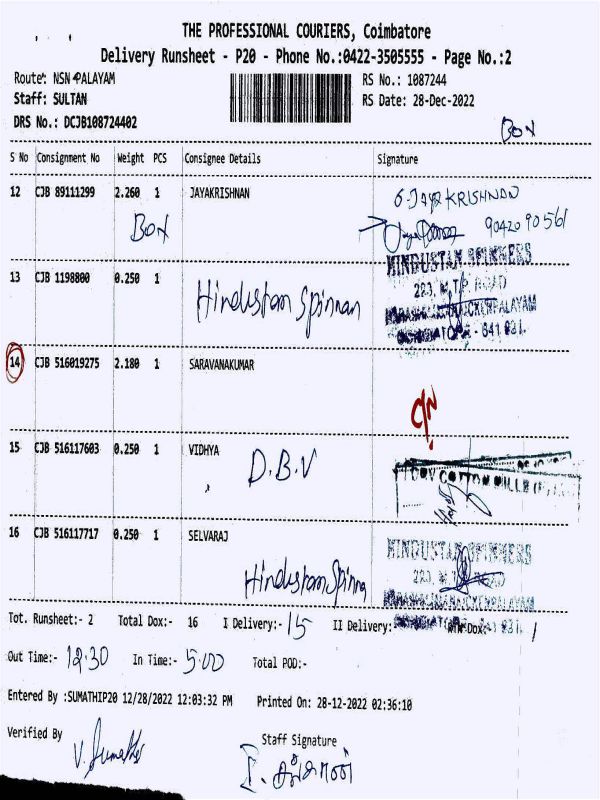 THE PROFESSIONAL COURIERS, Coimbatore
Delivery Runsheet - P20 - Phone No.:0422-3505555 - Page No.:2
Route: NSN PALAYAM
RS No.: 1087244
Staff: SULTAN
RS Date: 28-Dec-2022
DRS No.: DCJB108724402
Box
S No Consignment No Weight PCS Consignee Details Signature
12 CJB 89111299 2.260 1 JAYAKRISHNAN
G. JAYA KRISHNAN
Box
90420 90561
HINDUSTAN SPINNERS
223, M.T.P. ROAD
13 CJB 1198800 0.250 1 Hindustan Spinnan
- 641 031.
14 CJB 516019275 2.180 1 SARAVANAKUMAR
C/N
15 CJB 516117603 0.250 1 VIDHYA
D.B.V
COTTON MILLS
16 CJB 516117717 0.250 1 SELVARAJ
HINDUSTAN SPINNERS
Hindustan Spinna
223, M.T.P. ROAD
Tot. Runsheet:- 2 Total Dox:- 16 I Delivery:- 15 II Delivery:
Out Time:- 12.30 In Time:- 5.00 Total POD:-
Entered By :SUMATHIP20 12/28/2022 12:03:32 PM Printed On: 28-12-2022 02:36:10
Verified By
Staff Signature
V. Sumathi